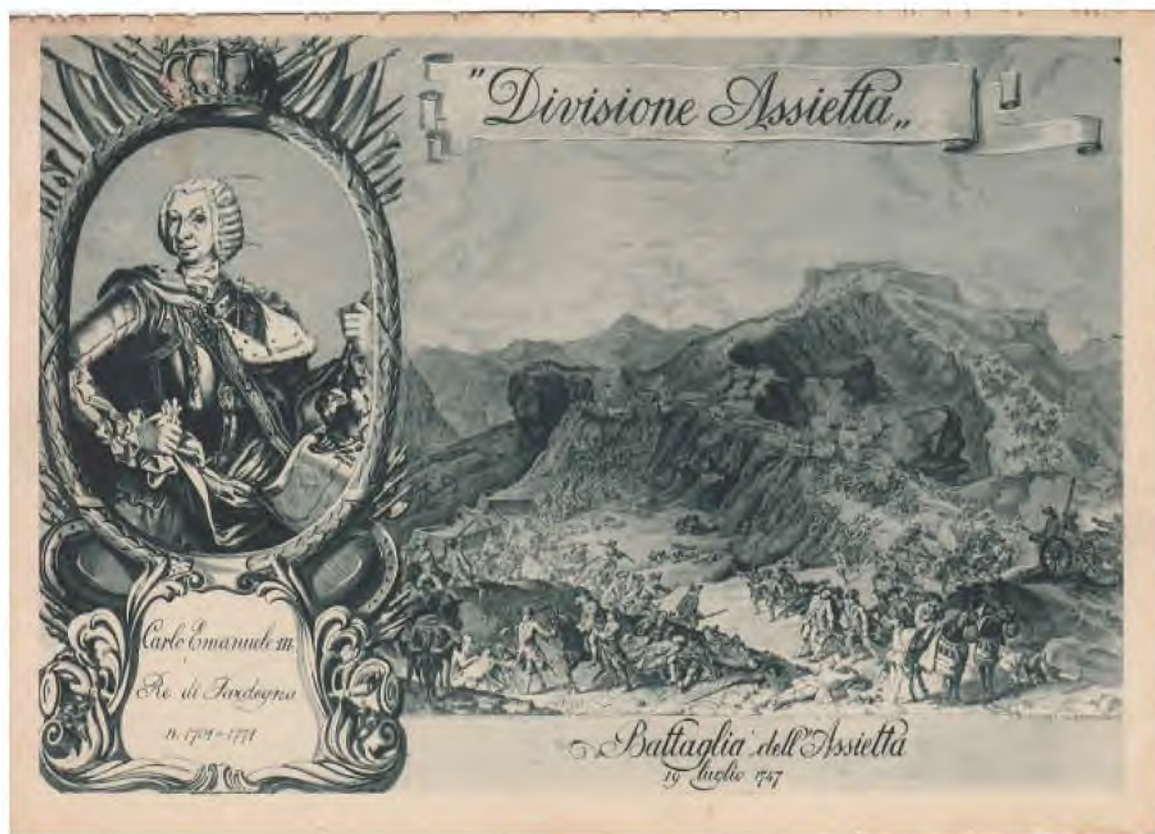 "Divisione Assietta„
Carlo Emanuele III.
Re di Sardegna
n. 1701 - 1771
Battaglia dell'Assietta
19 luglio 1747